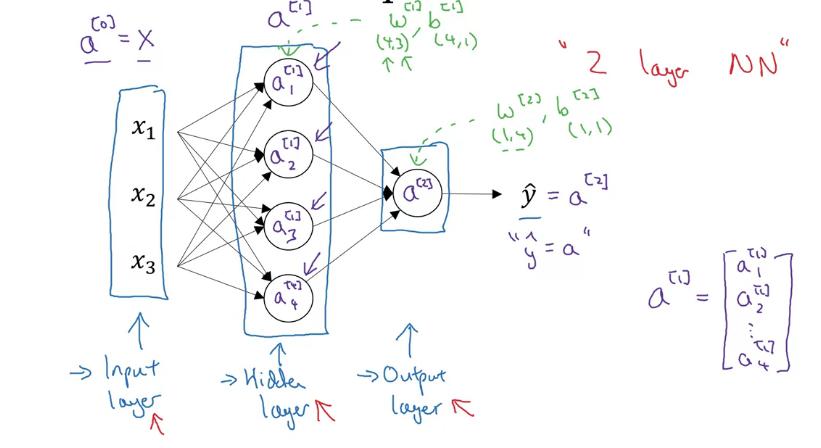 a^[0] = X
a^[1]
w^[1], b^[1]
(4,3) (4,1)
"2 layer NN"
x₁
x₂
x₃
a₁^[1]
a₂^[1]
a₃^[1]
a₄^[4]
w^[2], b^[2]
(1,4) (1,1)
a^[2]
ŷ = a^[2]
"ŷ = a"
a^[1] =
a₁^[1]
a₂^[1]
⋮
a₄^[1]
→ Input
layer
→ Hidden
layer
→ Output
layer